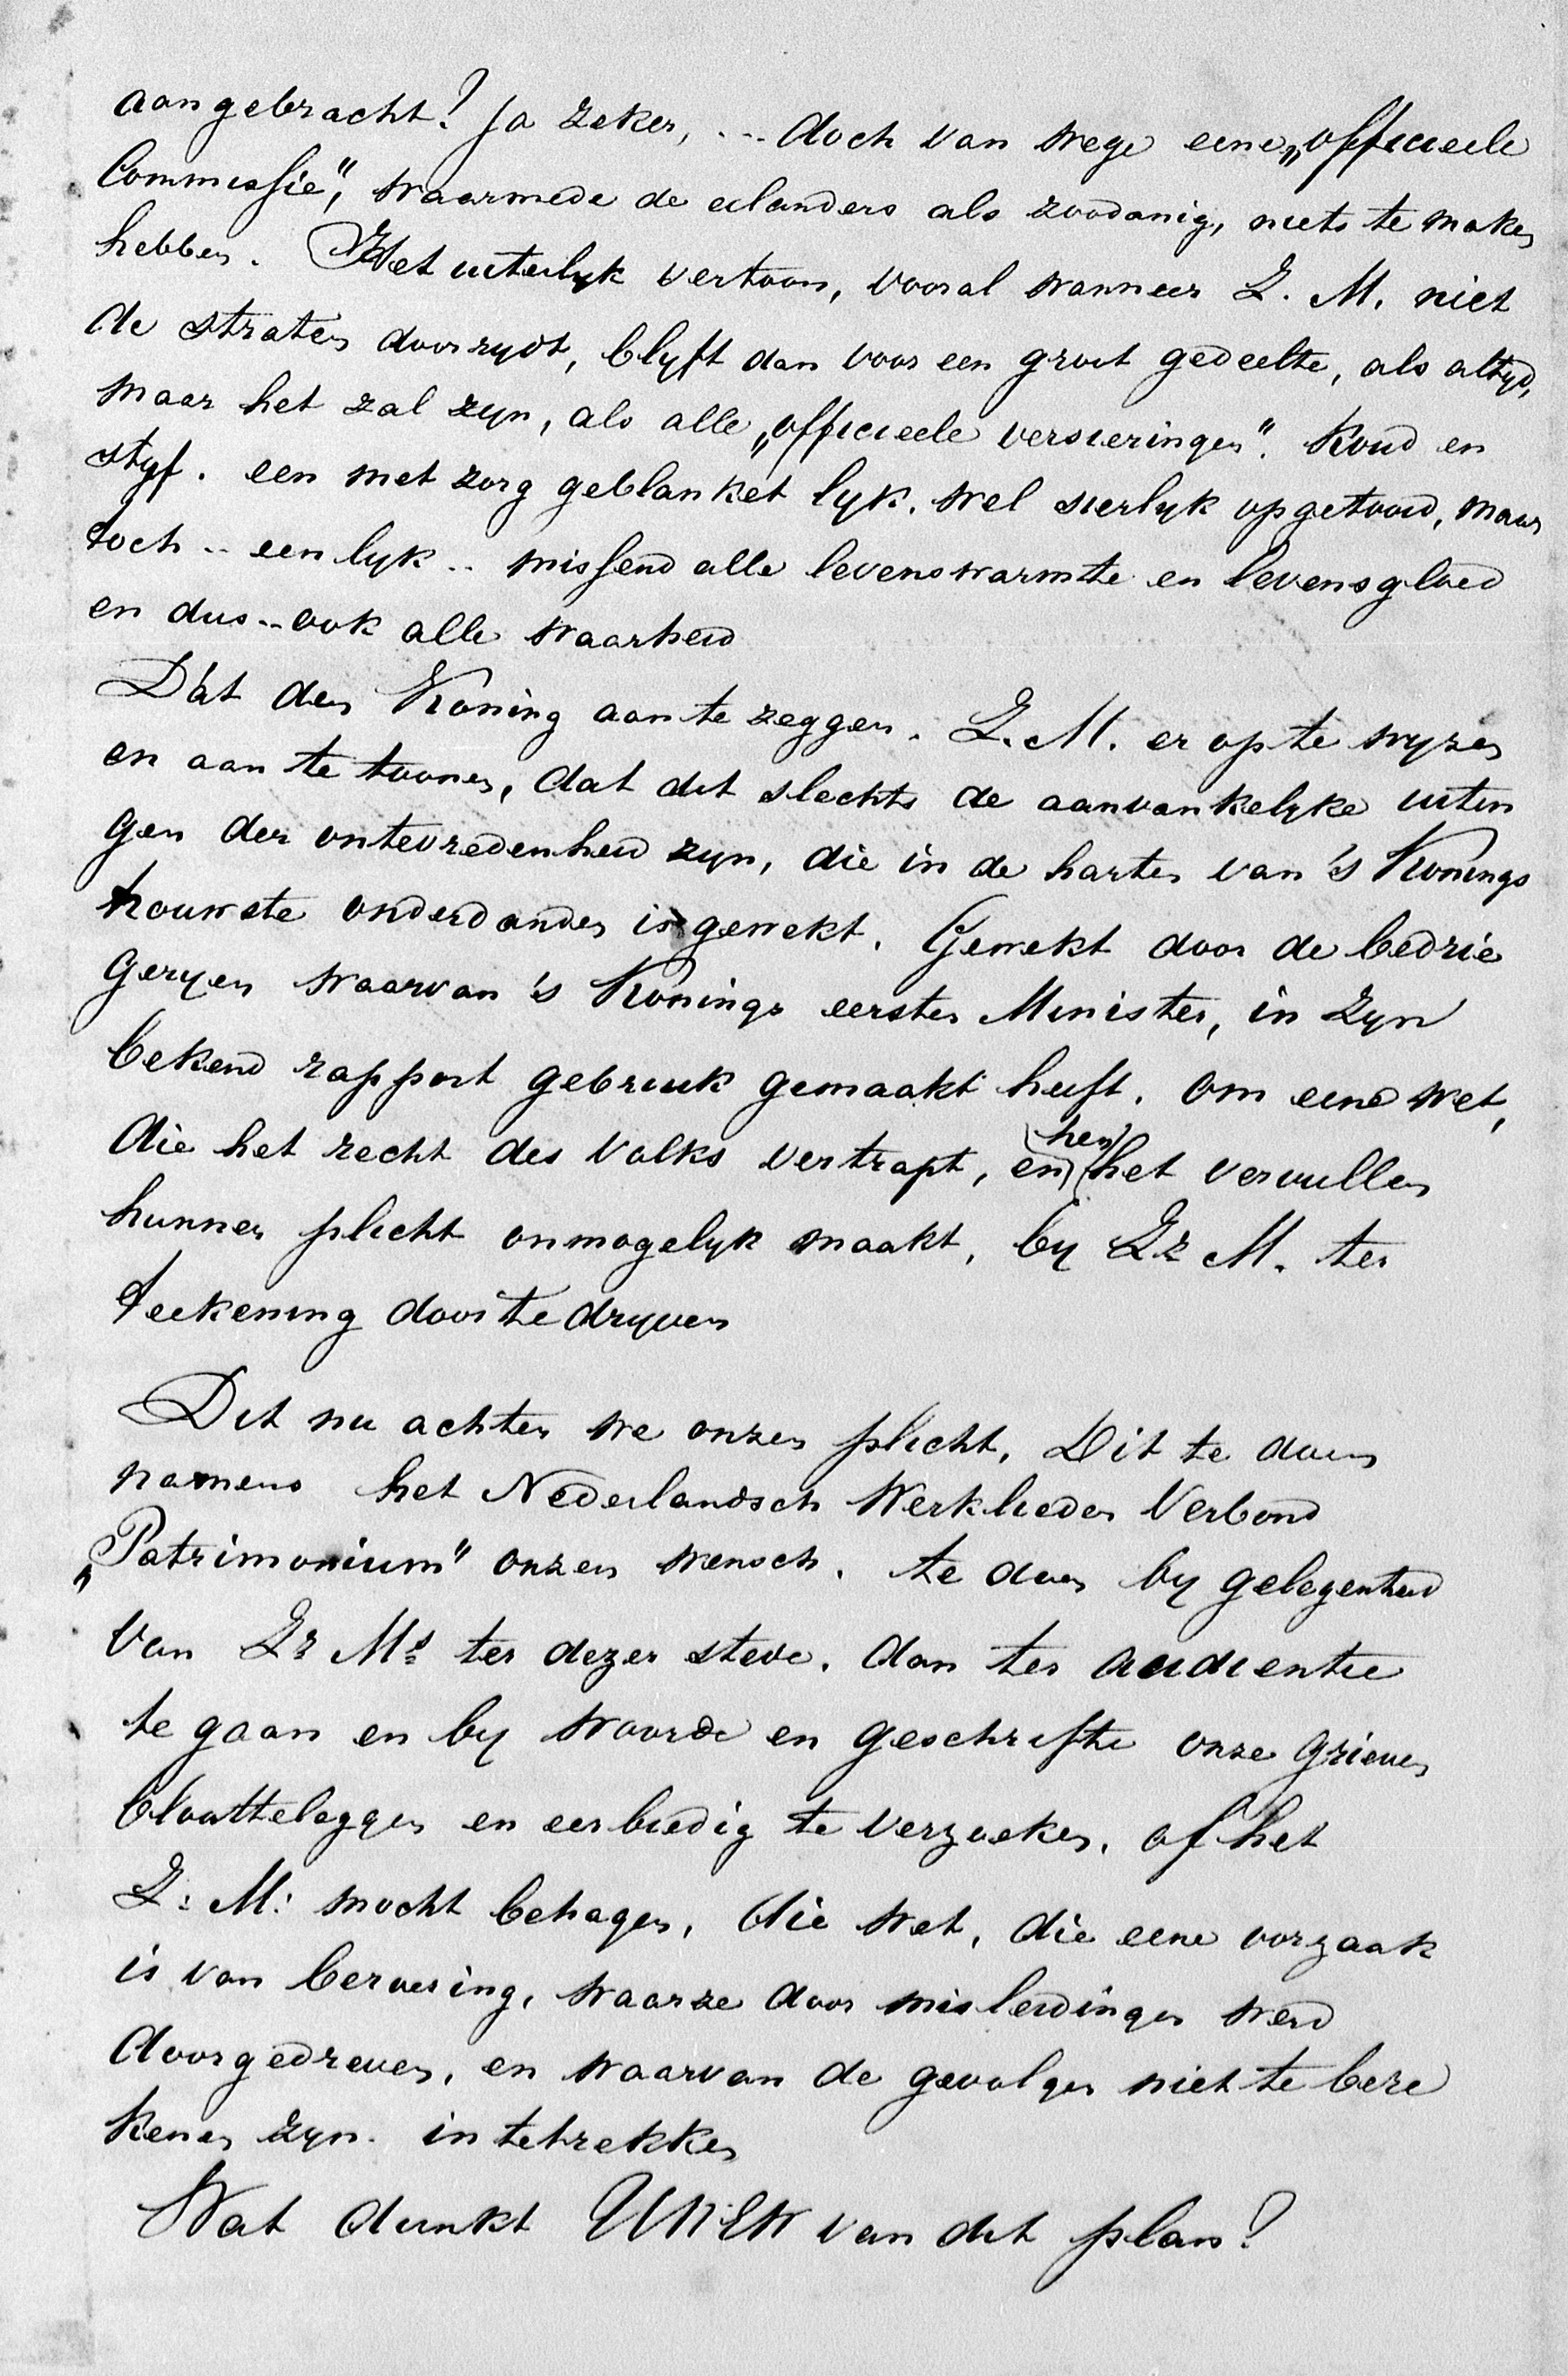 aangebracht? Ja zeker, ... doch van wege eene „officieele
Commissie", waarmede de eilanders als zoodanig, niets te maken
hebben. Het uiterlyk vertoon, vooral wanneer Z. M. niet
de straten doorrydt, blyft dan voor een groot gedeelte, als altyd,
maar het zal zyn, als alle „officieele versieringen". Koud en
styf. een met zorg geblanket lyk. wel sierlyk opgetooid, maar
toch .. een lyk .. missend alle levenswarmte en levensgloed
en dus .. ook alle waarheid
Dát den Koning aan te zeggen. Z. M. er op te wyzen
en aan te toonen, dat dit slechts de aanvankelyke uitin
gen der ontevredenheid zyn, die in de harten van 's Konings
trouwste onderdanen is gewekt. Gewekt door de bedrie
geryen waarvan 's Konings eersten Minister, in zyn
bekend rapport gebruik gemaakt heeft. om eene wet,
die het recht des Volks vertrapt, en (hen) het vervullen
hunner plicht onmogelyk maakt, by Zr M. ter
teekening door te dryven
Dit nu achten we onzen plicht. Dit te doen
namens het Nederlandsch Werklieden Verbond
„Patrimonium" onzen wensch. te doen by gelegenheid
van Zr Ms ter dezer stede. dan ter audientie
te gaan en by woorde en geschrifte onze grieven
blootteleggen en eerbiedig te verzoeken. of het
Z: M: mocht behagen, die wet, die eene oorzaak
is van beroering, waar ze door misleidingen werd
doorgedreven, en waarvan de gevolgen niet te bere
kenen zyn. in te trekken
Wat dunkt UWEW van dit plan?